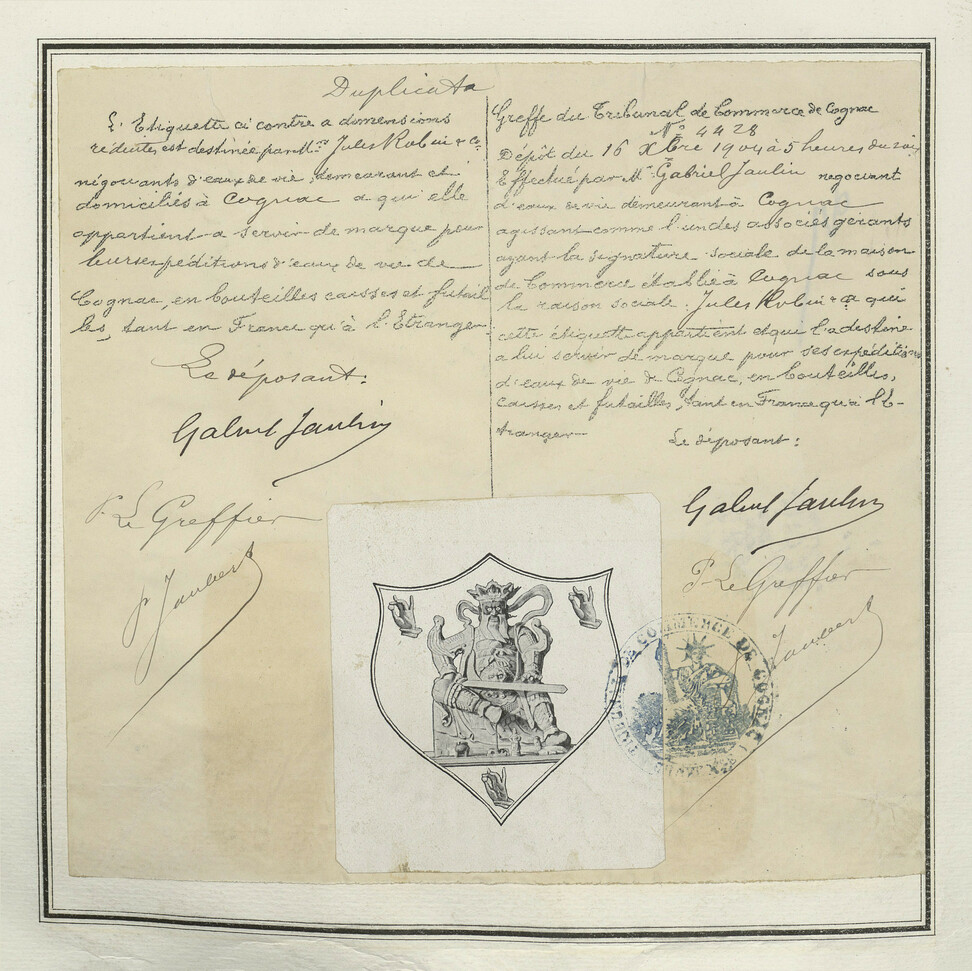 Duplicata
L'Etiquette ci contre a dimensions
réduites est destinée par Mrs Jules Robin & Co
négociants d'eaux de vie, demeurant et
domiciliés à Cognac a qui elle
appartient a servir de marque pour
leurs expéditions d'eaux de vie de
Cognac, en bouteilles caisses et futail
les, tant en France qu'à l'Etranger
Le déposant:
Gabriel Jaulin
P. Le Greffier
Greffe du Tribunal de Commerce de Cognac
No 4428
Dépôt du 16 Xbre 1904 à 5 heures du soir
Effectué par Mr Gabriel Jaulin negociant
d'eaux de vie demeurant à Cognac
agissant comme l'un des associés gérants
ayant la signature sociale de la maison
de Commerce établie à Cognac sous
la raison sociale. Jules Robin & Co qui
cette étiquette appartient et qui l'a destine
a lui servir de marque pour ses expéditions
d'eaux de vie de Cognac, en bouteilles,
caisses et futailles, tant en France qu'à l'E-
tranger
Le déposant:
Gabriel Jaulin
P. Le Greffier
DE COMMERCE DE COGNAC